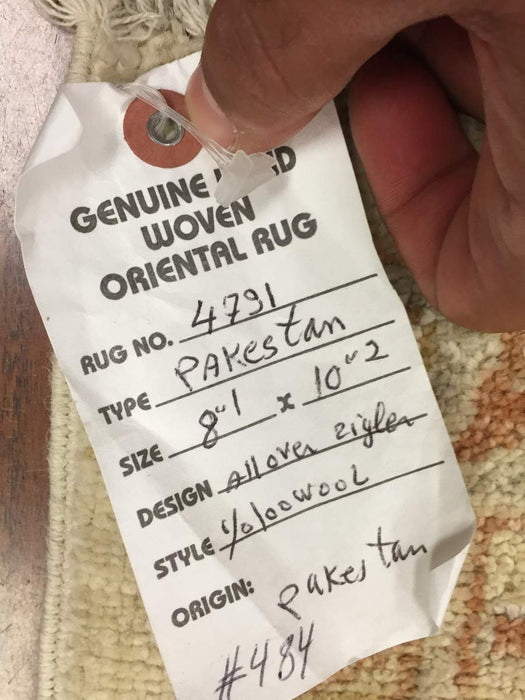 GENUINE HAND
WOVEN
ORIENTAL RUG
RUG NO. 4791
TYPE PAKestan
SIZE 8"1 x 10"2
DESIGN Allover zigler
STYLE %100wool
ORIGIN: pakestan
#484